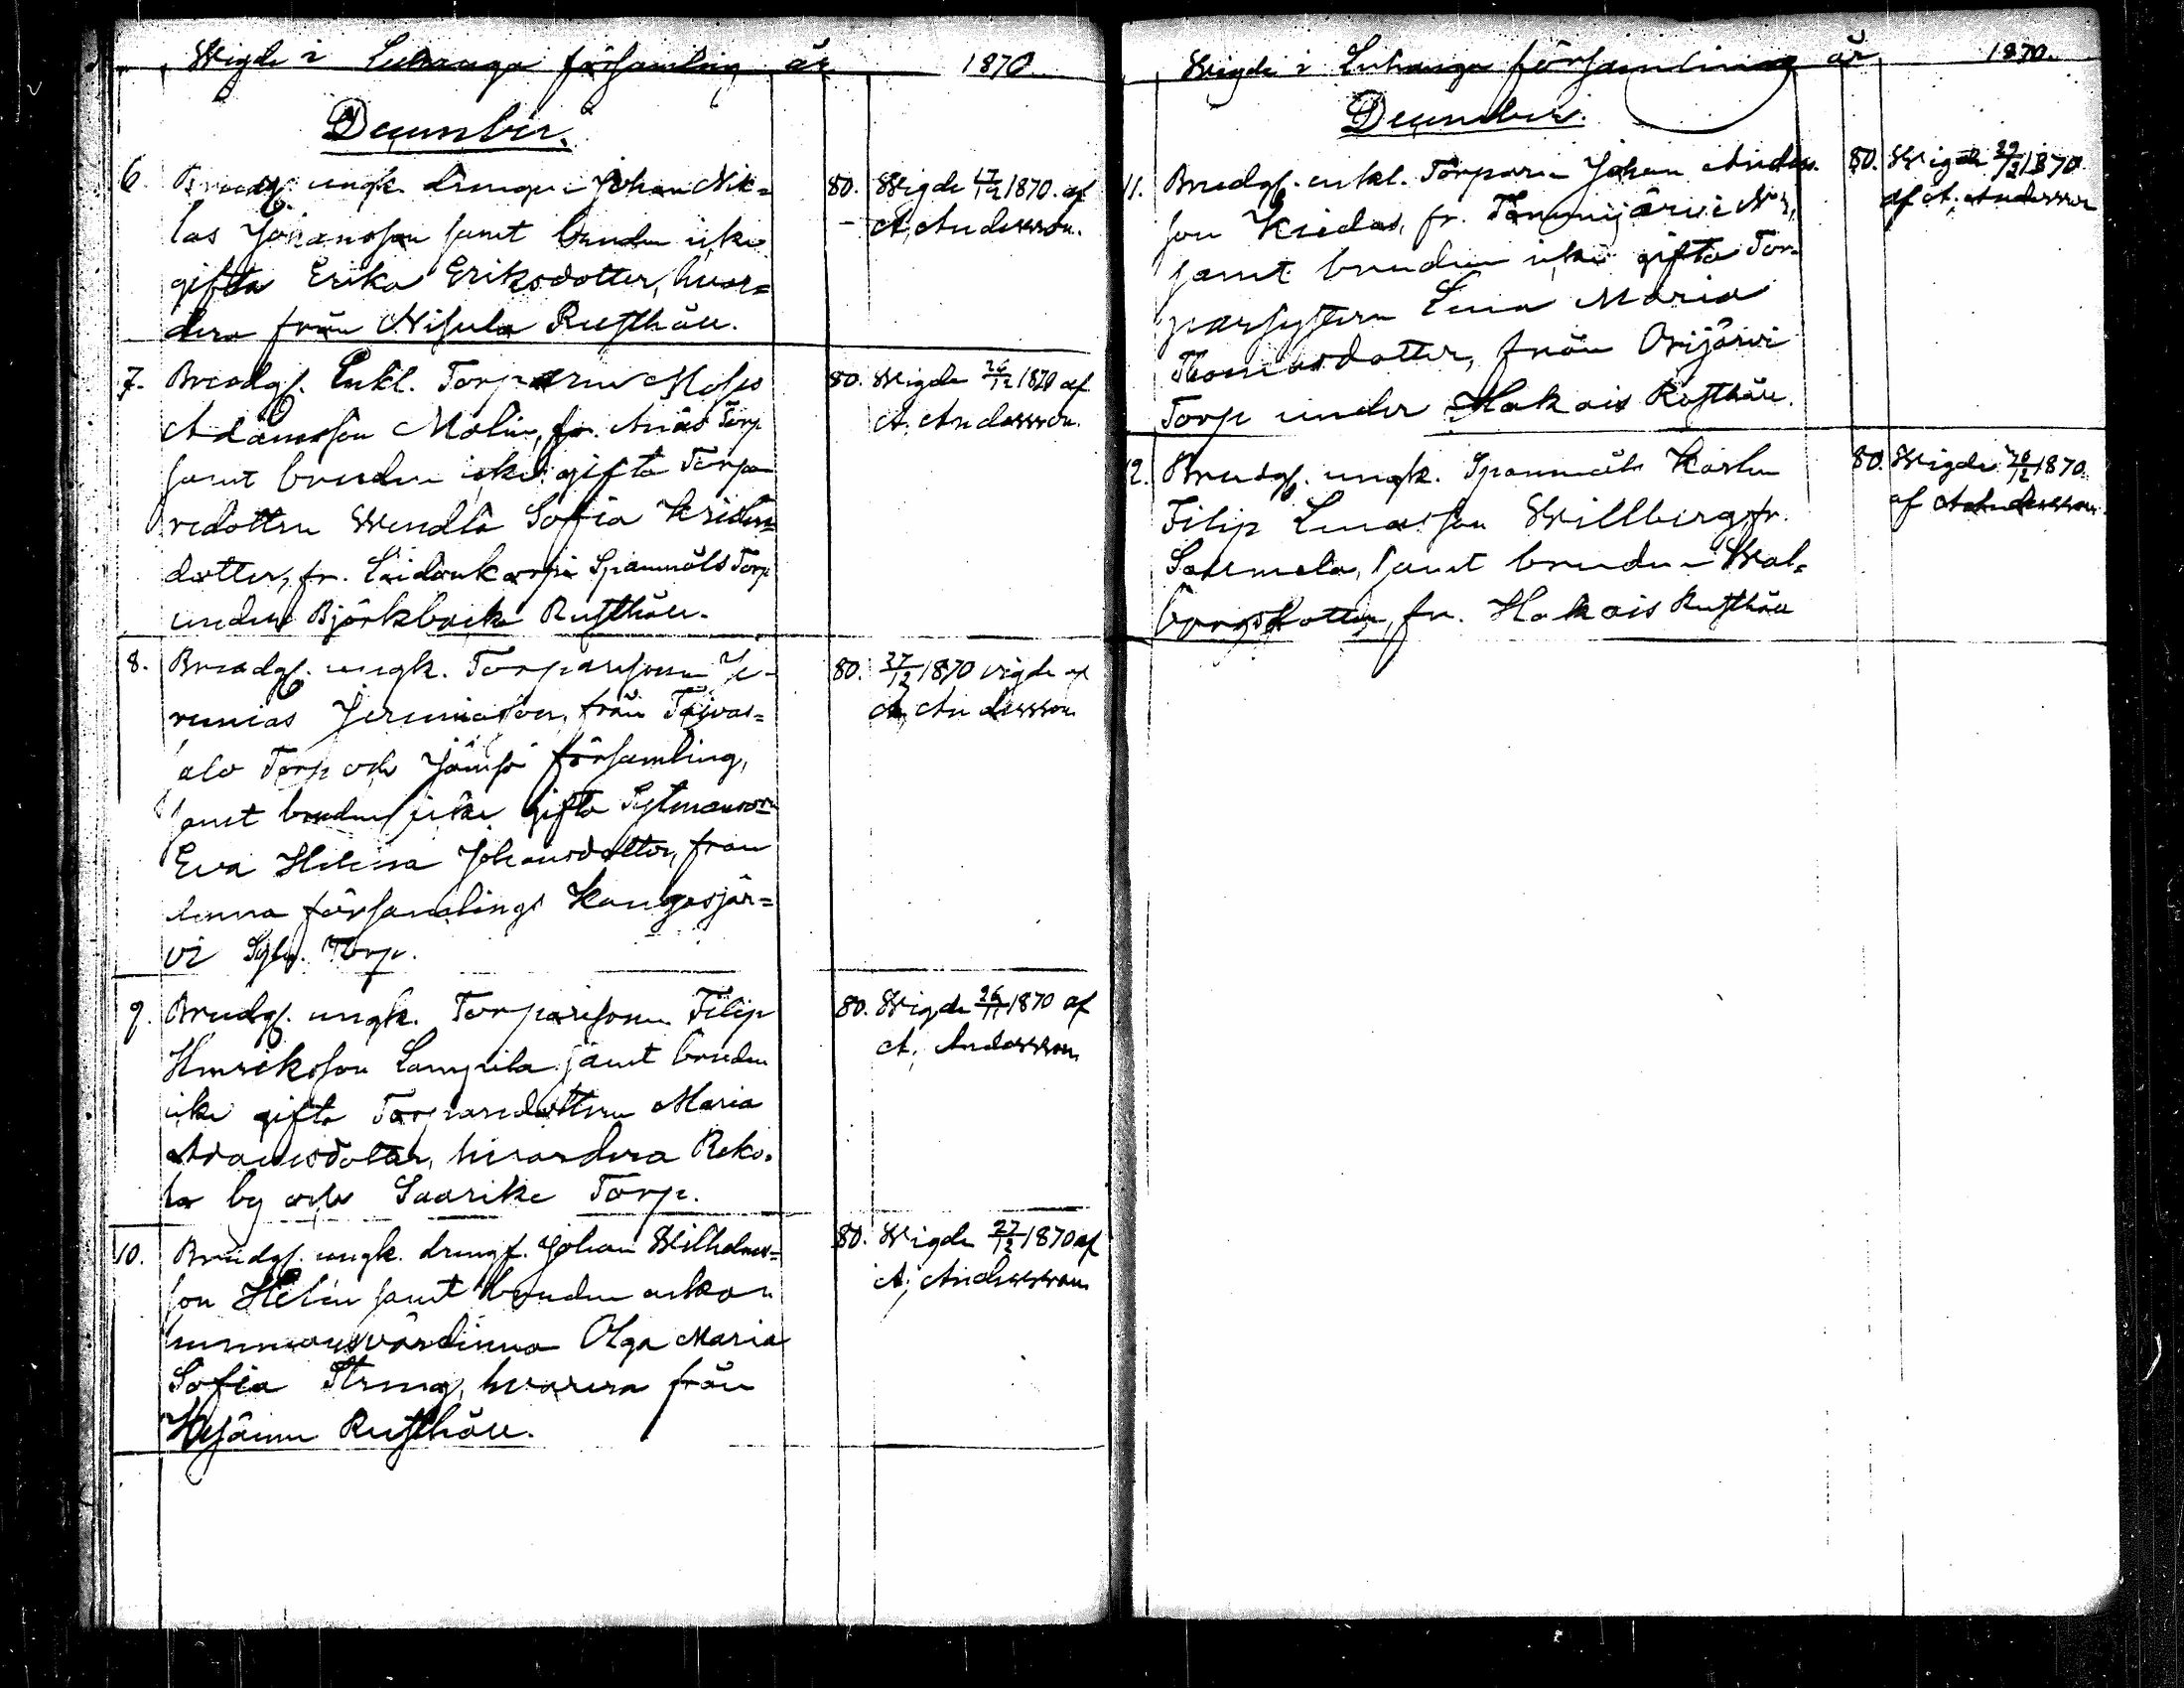 Wigde i Luhanga församling år 1870.
December.
6. Brudg. ungk. drengen Johan Nik=
las Johansson samt bruden icke
gifta Erika Eriksdotter, hvar=
dera från Nisula Rusthåll.
80. Wigde 17/12 1870. af
A. Andersson.
7. Brudg. Enkl. Torparen Moses
Adamsson Molin, fr. Anäs Torp
samt bruden icke gifta Torpa
redottren Wendla Sofia Kristers=
dotter, fr. Spannmåls Torp
under Björkbacka Rusthåll.
80. Wigde 26/12 1870 af
A. Andersson.
8. Brudg. ungk. Torparesonen Je-
remias Jeremiasson, från Taivas=
alo Torp och Jämsä församling,
samt bruden icke gifta
Eva Helena Johansdotter, från
denna församlings Kangasjär=
vi Torp.
80. 27/12 1870 vigde af
A. Andersson
9. Brudg. ungk. Torparesonen Filip
Henriksson Lampila samt bruden
icke gifta Torparedottren Maria
Adamsdotter, hvardera Reko=
la by och Saarike Torp.
80. Wigde 26/11 1870 af
A. Andersson
10. Brudg. ungk. dreng f. Johan Wilhelms=
son Helin samt bruden enkan
hemmansvärdinna Olga Maria
Sofia Streng, hvarera från
Rusthåll.
80. Wigde 27/12 1870 af
A. Andersson
Wigde i Luhanga församling år 1870.
December.
11. Brudg. enkl. Torparen Johan Anders=
son Kuidas, fr. Tammijärvi No 2,
samt bruden icke gifta Tor=
parsystern Lena Maria
Thomasdotter, från Orijärvi
Torp under Hakais Rusthåll.
80. Wigde 29/12 1870
af A. Andersson
12. Brudg. ungk. Spannmåls Karlen
Filip Willberg, fr.
samt bruden Wal=
borgsdotter, fr. Hakais Rusthåll
80. Wigde 26/12 1870.
af A. Andersson.